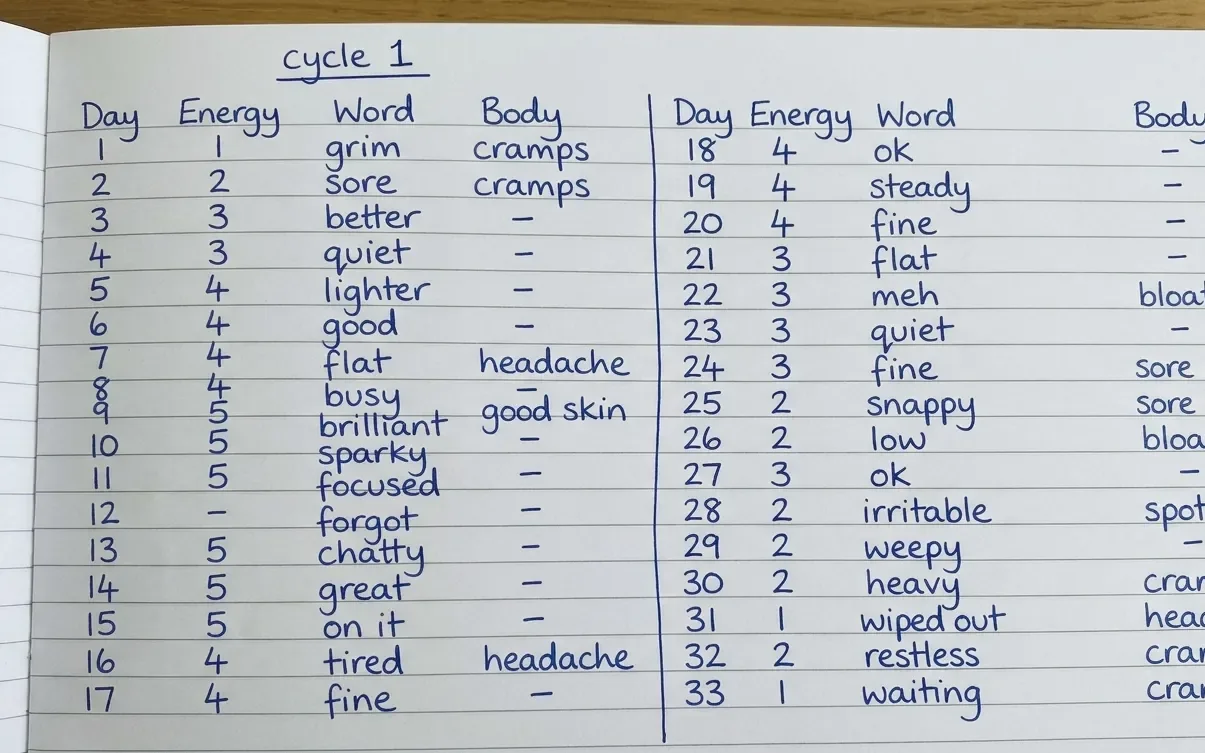 cycle 1
Day Energy Word Body
1 1 grim cramps
2 2 sore cramps
3 3 better –
4 3 quiet –
5 4 lighter –
6 4 good –
7 4 flat headache
8 4 busy –
9 5 brilliant good skin
10 5 sparky –
11 5 focused –
12 – forgot –
13 5 chatty –
14 5 great –
15 5 on it –
16 4 tired headache
17 4 fine –
Day Energy Word Body
18 4 ok –
19 4 steady –
20 4 fine –
21 3 flat –
22 3 meh
23 3 quiet –
24 3 fine sore
25 2 snappy sore
26 2 low
27 3 ok –
28 2 irritable
29 2 weepy –
30 2 heavy
31 1 wiped out
32 2 restless
33 1 waiting